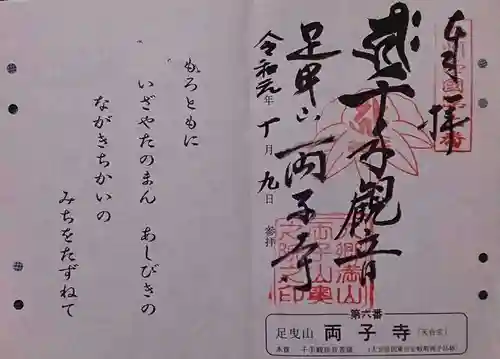 奉拝
千手観音
足曳山
両子寺
令和元年十月九日 参拝
第六番
足曳山 両子寺 (天台宗)
本尊 千手観世音菩薩
もろともに
いざやたのまん あしびきの
ながきちかいの
みちをたずねて